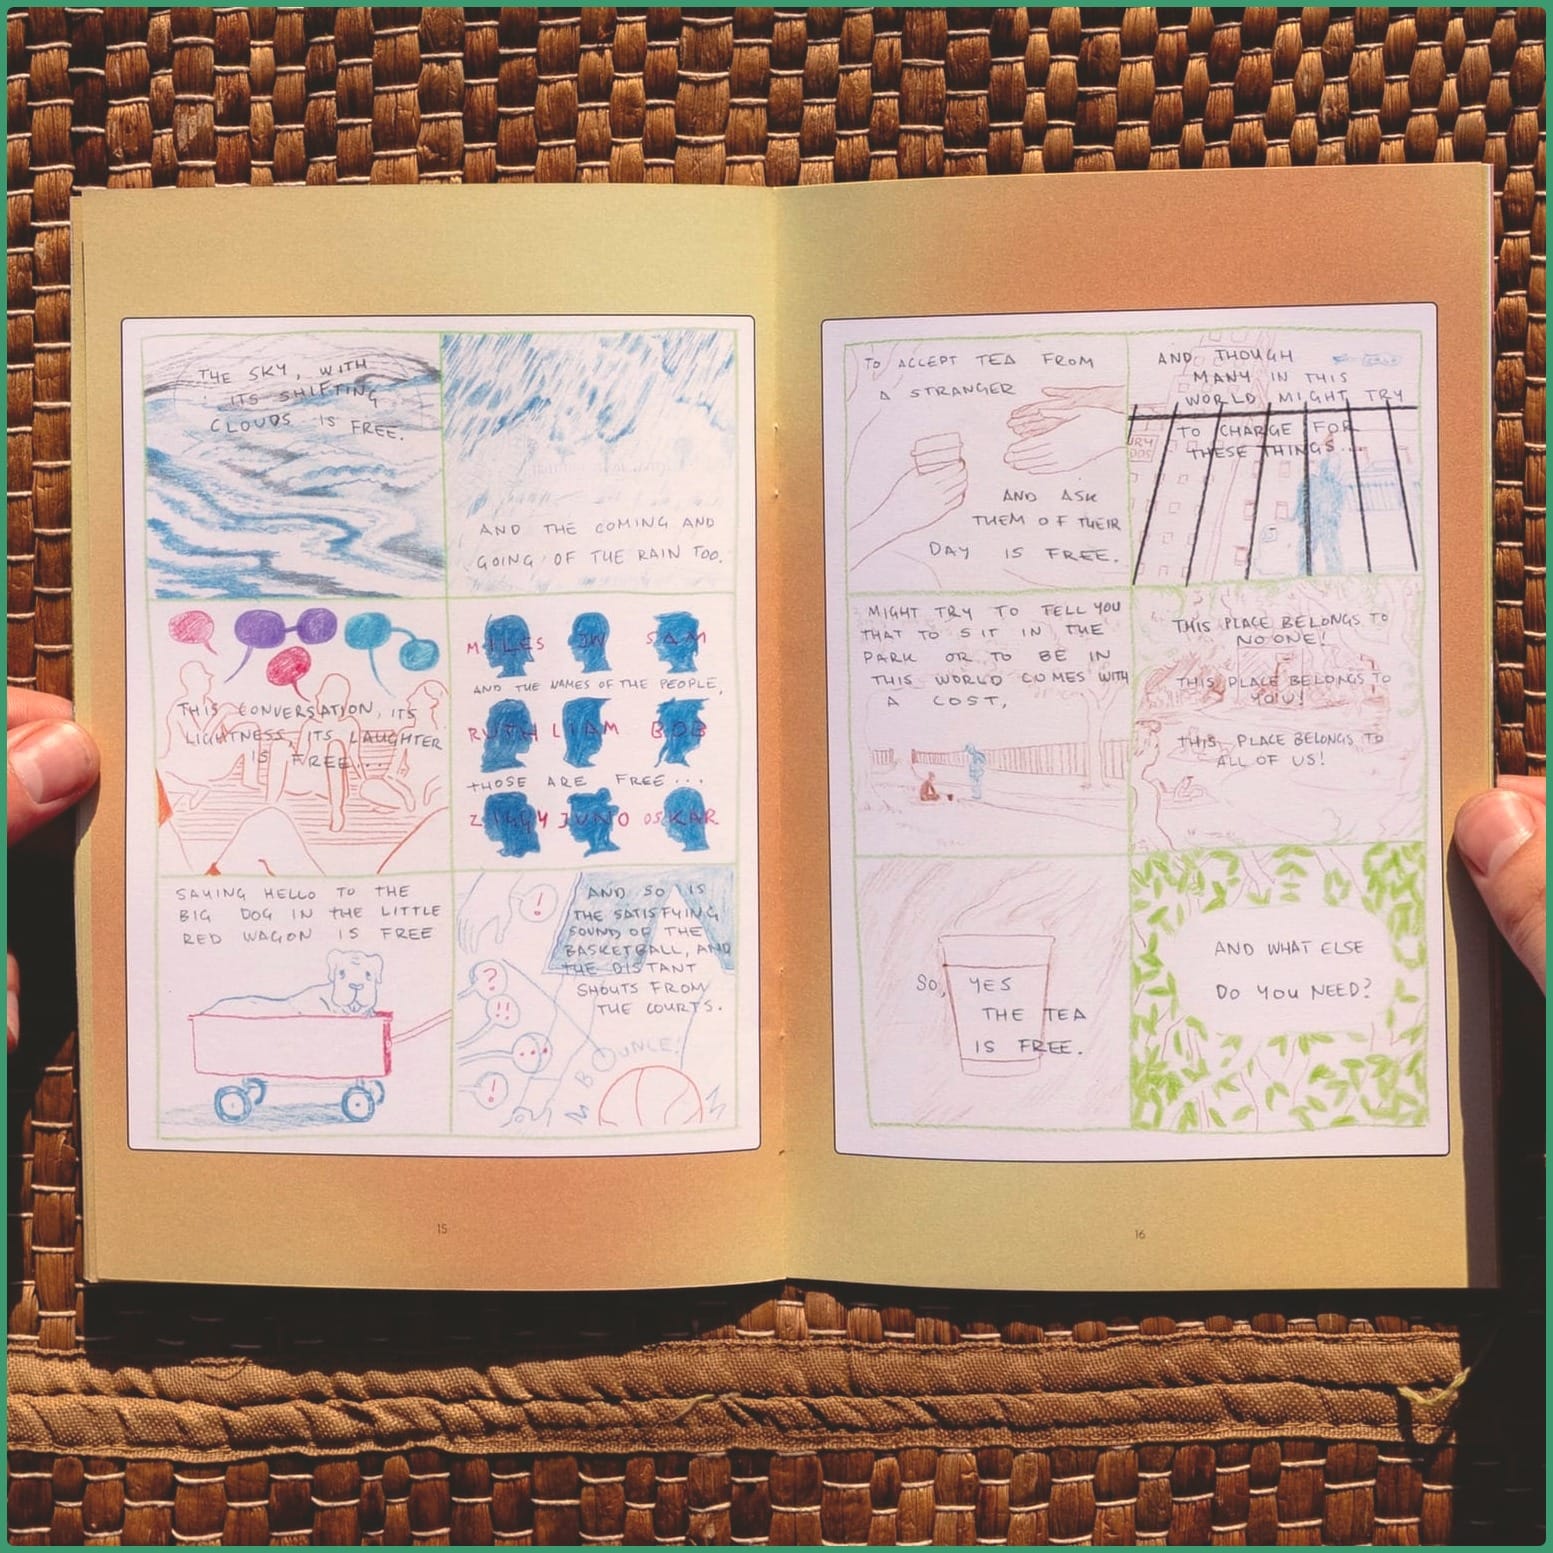 THE SKY, WITH
ITS SHIFTING
CLOUDS IS FREE.
AND THE COMING AND
GOING OF THE RAIN TOO.
THIS CONVERSATION, ITS
LIGHTNESS, ITS LAUGHTER
IS FREE...
MILES JW SAM
AND THE NAMES OF THE PEOPLE,
RUTH LIAM BOB
THOSE ARE FREE...
ZIGGY JUNO OSKAR
SAYING HELLO TO THE
BIG DOG IN THE LITTLE
RED WAGON IS FREE
!
?
!!
...
!
AND SO IS
THE SATISFYING
SOUND OF THE
BASKETBALL, AND
THE DISTANT
SHOUTS FROM
THE COURTS.
BOUNCE!
15
TO ACCEPT TEA FROM
A STRANGER
AND ASK
THEM OF THEIR
DAY IS FREE.
AND THOUGH
MANY IN THIS
WORLD MIGHT TRY
TO CHARGE FOR
THESE THINGS...
MIGHT TRY TO TELL YOU
THAT TO SIT IN THE
PARK OR TO BE IN
THIS WORLD COMES WITH
A COST,
THIS PLACE BELONGS TO
NO ONE!
THIS PLACE BELONGS TO
YOU!
THIS PLACE BELONGS TO
ALL OF US!
SO, YES
THE TEA
IS FREE.
AND WHAT ELSE
DO YOU NEED?
16